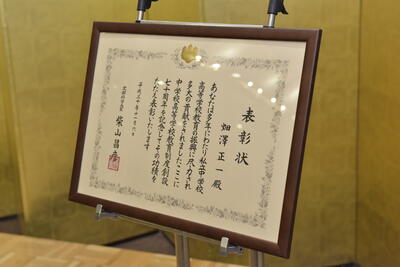 表彰状
畑澤正一殿
あなたは多年にわたり私立中学校
高等学校教育の振興に尽力され
多大の貢献をされましたここに
中学校高等学校教育制度創設
七十周年を記念してその功績を
たたえ表彰いたします
平成三十年十一月六日
文部科学大臣
柴山昌彦